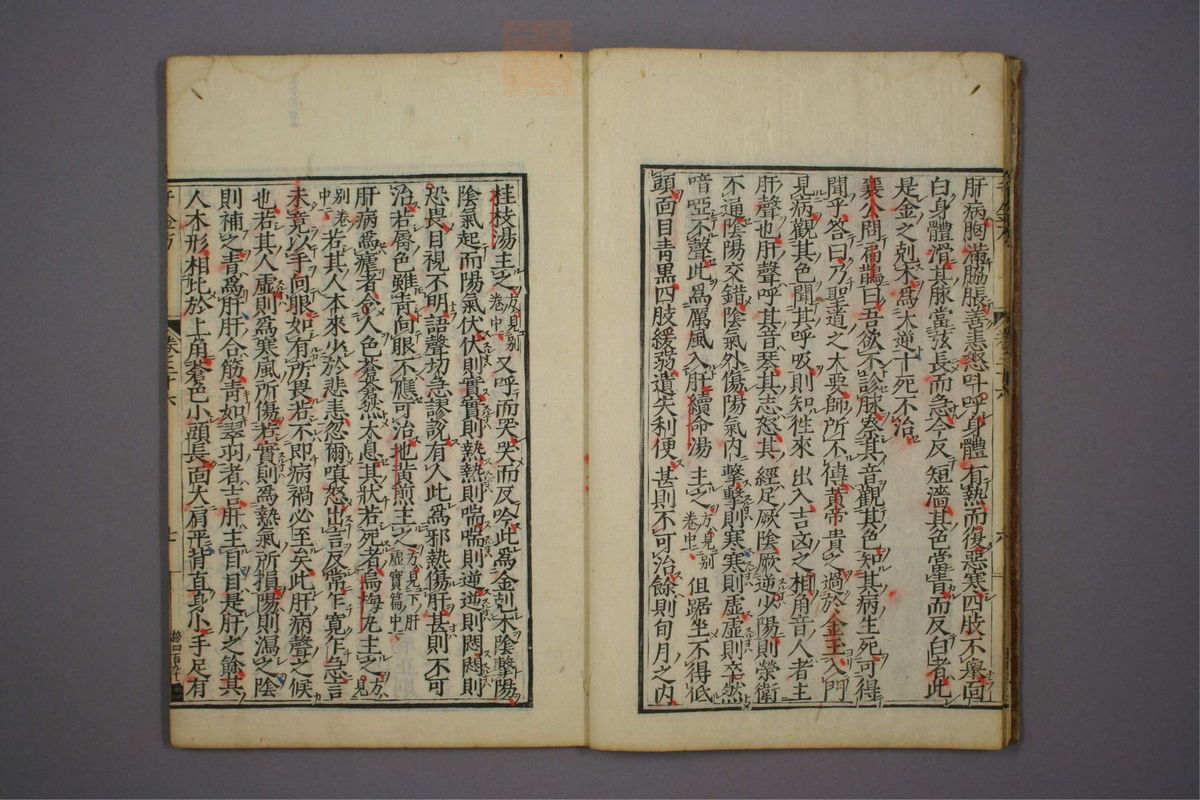 肝病胸滿脇脹善恚怒叫呼身體有熱而復惡寒四肢不舉面
白身體滑其脉當弦長而急今反短濇其色當青而反白者此
是金之剋木爲大逆十死不治
襄公問扁鵲曰吾欲不診脉察其音觀其色知其病生死可得
聞乎答曰乃聖道之大要師所不傳黃帝貴之過於金玉入門
見病觀其色聞其呼吸則知往來出入吉凶之相角音人者主
肝聲也肝聲呼其音琴其志怒其經足厥陰厥逆少陽則榮衛
不通陰陽交錯陰氣外傷陽氣內擊擊則寒寒則虛虛則卒然
喑啞不聲此爲厲風入肝續命湯主之方見別卷中但踞坐不得低
頭面目青黑四肢緩弱遺失利便甚則不可治餘則旬月之內
桂枝湯主之方見別卷中又呼而哭哭而反吟此爲金剋木陰擊陽
陰氣起而陽氣伏伏則實實則熱熱則喘喘則逆逆則悶悶則
恐畏目視不明語聲切急謬說有人此爲邪熱傷肝甚則不可
治若唇色雖青向眼不應可治地黃煎主之方見下肝虛實篇中
肝病爲瘧者令人色蒼蒼然太息其狀若死者烏梅丸主之方見
別卷中若其人本來少於悲恚忽爾嗔怒出言反常乍寬乍急言
未竟以手向眼如有所畏若不即病禍必至矣此肝病聲之候
也若其人虛則爲寒風所傷若實則爲熱氣所損陽則瀉之陰
則補之青爲肝肝合筋青如翠羽者吉肝主目目是肝之餘其
人木形相比於上角蒼色小頭長面大肩平背直身小手足有
卷三十六